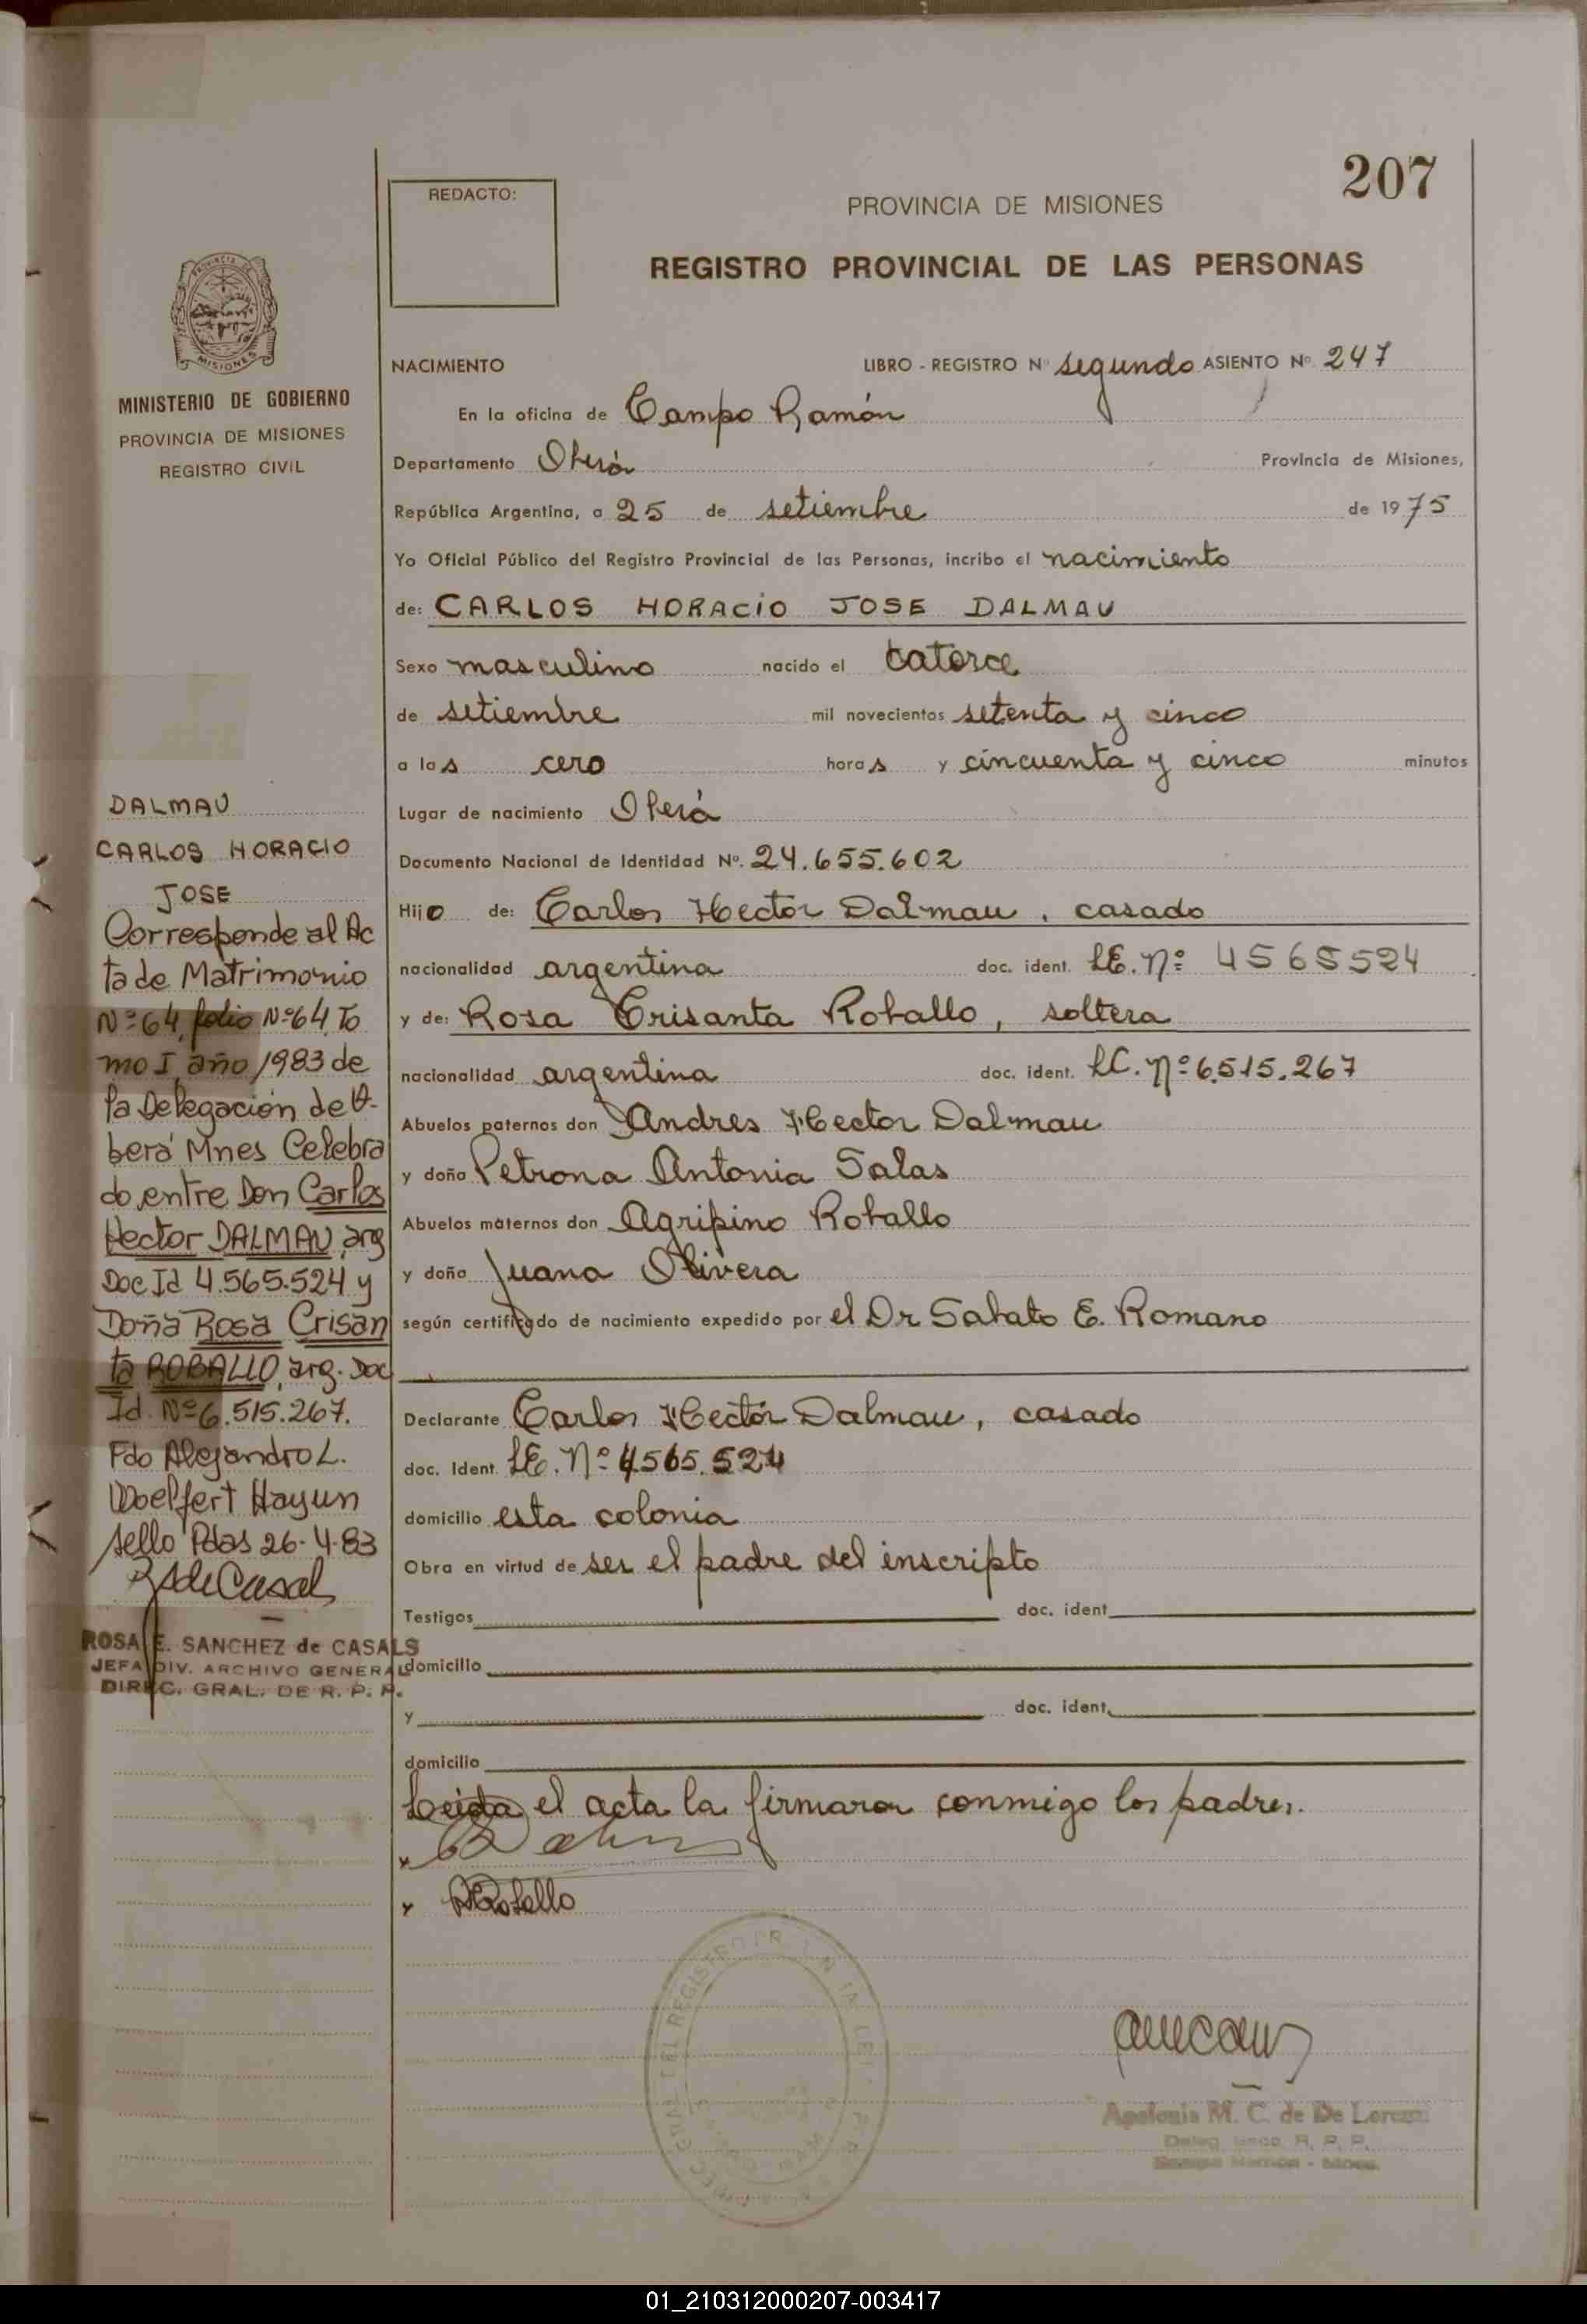 207
REDACTO:
PROVINCIA DE MISIONES
REGISTRO PROVINCIAL DE LAS PERSONAS
MISIONES
MINISTERIO DE GOBIERNO
PROVINCIA DE MISIONES
REGISTRO CIVIL
NACIMIENTO LIBRO - REGISTRO Nº segundo ASIENTO Nº 247
En la oficina de Campo Ramón
Departamento Oberá Provincia de Misiones,
República Argentina, a 25 de setiembre de 1975
Yo Oficial Público del Registro Provincial de las Personas, incribo el nacimiento
de: CARLOS HORACIO JOSE DALMAU
Sexo masculino nacido el catorce
de setiembre mil novecientos setenta y cinco
a las cero horas y cincuenta y cinco minutos
Lugar de nacimiento Oberá
Documento Nacional de Identidad Nº. 24.655.602
Hijo de: Carlos Hector Dalmau, casado
nacionalidad argentina doc. ident. LE. Nº 4565524
y de: Rosa Crisanta Roballo, soltera
nacionalidad argentina doc. ident. LC. Nº 6.515.267
Abuelos paternos don Andres Hector Dalmau
y doña Petrona Antonia Salas
Abuelos maternos don Agripino Roballo
y doña Juana Olivera
según certificado de nacimiento expedido por el Dr Sabato E. Romano
Declarante Carlos Hector Dalmau, casado
doc. Ident. LE. Nº 4.565.524
domicilio esta colonia
Obra en virtud de ser el padre del inscripto
Testigos doc. ident
domicilio
y doc. ident.
domicilio
Leida el acta la firmaron conmigo los padres.
RRoballo
DALMAU
CARLOS HORACIO
JOSE
Corresponde al Ac
ta de Matrimonio
Nº 64, folio Nº 64, To
mo I, año 1983 de
la Delegación de O-
berá Mnes Celebra
do entre Don Carlos
Hector DALMAU, arg
Doc Id 4.565.524 y
Doña Rosa Crisan
ta ROBALLO, arg. Doc
Id. Nº 6.515.267.
Fdo Alejandro L.
Woelfert Hayun
sello Pdas 26-4-83
RSdeCasals
ROSA E. SANCHEZ de CASALS
JEFA DIV. ARCHIVO GENERAL
DIREC. GRAL. DE R. P. P.
Apolonia M. C. de De Lorenzi
R. P. P.
01_210312000207-003417